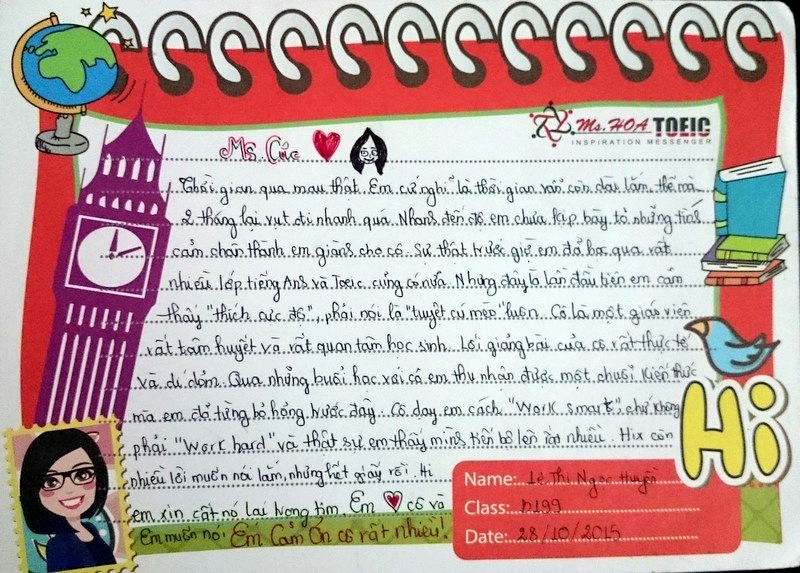 Ms. HOA TOEIC
INSPIRATION MESSENGER
Ms. Cúc
Thời gian qua mau thật. Em cứ nghĩ là thời gian vẫn còn dài lắm, thế mà
2 tháng lại vụt đi nhanh quá. Nhanh đến độ em chưa kịp bày tỏ những tình
cảm chân thành em giành cho cô. Sự thật trước giờ em đã học qua rất
nhiều lớp tiếng Anh và Toeic cũng có nữa. Nhưng đây là lần đầu tiên em cảm
thấy "thích cực độ", phải nói là "tuyệt cú mèo" luôn. Cô là một giáo viên
rất tâm huyết và rất quan tâm học sinh. Lối giảng bài của cô rất thực tế
và dí dỏm. Qua những buổi học với cô em thu nhận được một chuỗi kiến thức
mà em đã từng bỏ hổng trước đây. Cô dạy em cách "Work smart", chứ không
phải "Work hard" và thật sự em thấy mình tiến bộ lên rất nhiều. Hix còn
nhiều lời muốn nói lắm, nhưng hết giấy rồi. Hi
em xin cất nó lại trong tim. Em cô và
Em muốn nói: Em Cảm Ơn cô rất nhiều!
Hi
Name: Lê Thị Ngọc Huyền
Class: N199
Date: 28/10/2015